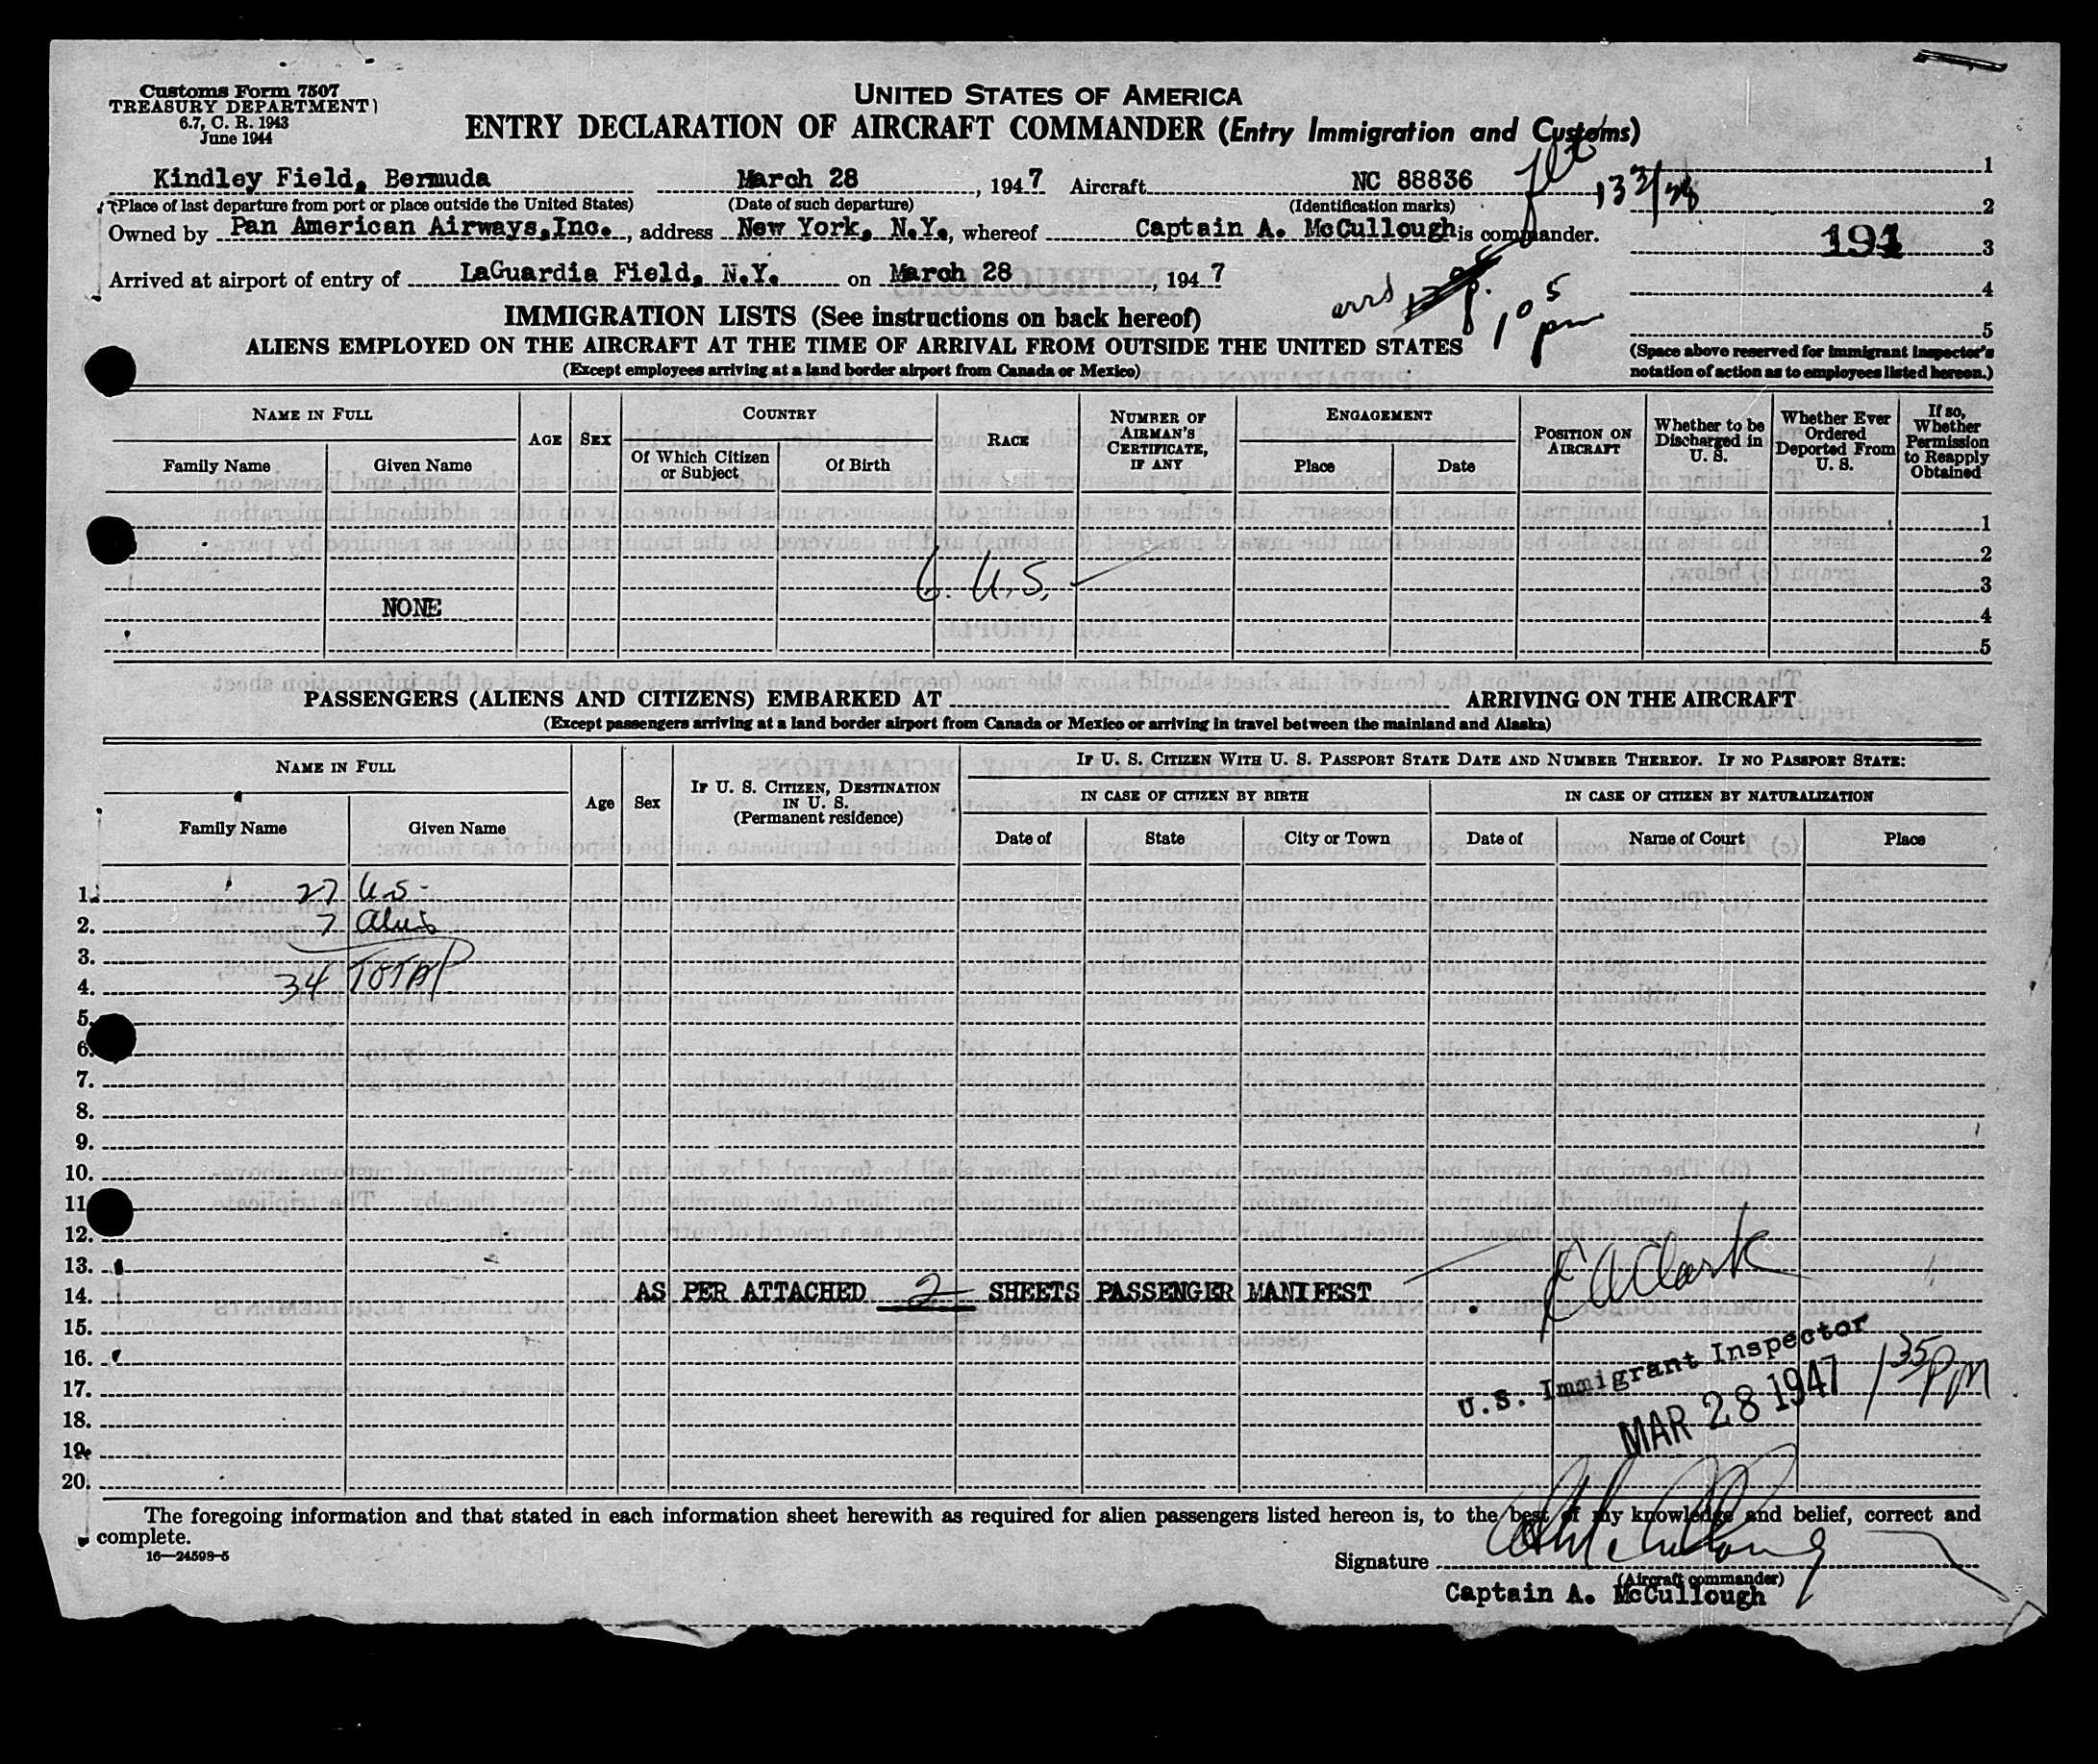 Customs Form 7507
TREASURY DEPARTMENT)
6.7, C. R. 1943
June 1944
UNITED STATES OF AMERICA
ENTRY DECLARATION OF AIRCRAFT COMMANDER (Entry Immigration and Customs)
Kindley Field, Bermuda March 28, 1947 Aircraft NC 88836
(Place of last departure from port or place outside the United States) (Date of such departure) (Identification marks)
Owned by Pan American Airways, Inc., address New York, N.Y., whereof Captain A. McCullough is commander.
Arrived at airport of entry of LaGuardia Field, N.Y. on March 28, 1947
1
2
191 3
4
5
(Space above reserved for immigrant inspector's
notation of action as to employees listed hereon.)
arrd 1 05 pm
IMMIGRATION LISTS (See instructions on back hereof)
ALIENS EMPLOYED ON THE AIRCRAFT AT THE TIME OF ARRIVAL FROM OUTSIDE THE UNITED STATES
(Except employees arriving at a land border airport from Canada or Mexico)
NAME IN FULL
Family Name
Given Name
AGE
SEX
COUNTRY
Of Which Citizen
or Subject
Of Birth
RACE
NUMBER OF
AIRMAN'S
CERTIFICATE,
IF ANY
ENGAGEMENT
Place
Date
POSITION ON
AIRCRAFT
Whether to be
Discharged in
U. S.
Whether Ever
Ordered
Deported From
U. S.
If so,
Whether
Permission
to Reapply
Obtained
1
2
6. U.S. 3
NONE 4
5
PASSENGERS (ALIENS AND CITIZENS) EMBARKED AT ARRIVING ON THE AIRCRAFT
(Except passengers arriving at a land border airport from Canada or Mexico or arriving in travel between the mainland and Alaska)
NAME IN FULL
Family Name
Given Name
Age
Sex
IF U. S. CITIZEN, DESTINATION
IN U. S.
(Permanent residence)
IF U. S. CITIZEN WITH U. S. PASSPORT STATE DATE AND NUMBER THEREOF. IF NO PASSPORT STATE:
IN CASE OF CITIZEN BY BIRTH
IN CASE OF CITIZEN BY NATURALIZATION
Date of
State
City or Town
Date of
Name of Court
Place
1. 27 U.S.
2. 7
3.
4. 34 TOTAL
5.
6.
7.
8.
9.
10.
11
12.
13.
14. AS PER ATTACHED 2 SHEETS PASSENGER MANIFEST
Clark
15.
U.S. Immigrant Inspector
16.
MAR 28 1947 1 35 PM
17.
18.
19.
20.
The foregoing information and that stated in each information sheet herewith as required for alien passengers listed hereon is, to the best of my knowledge and belief, correct and
complete.
16—24598-5
Signature
(Aircraft commander)
Captain A. McCullough